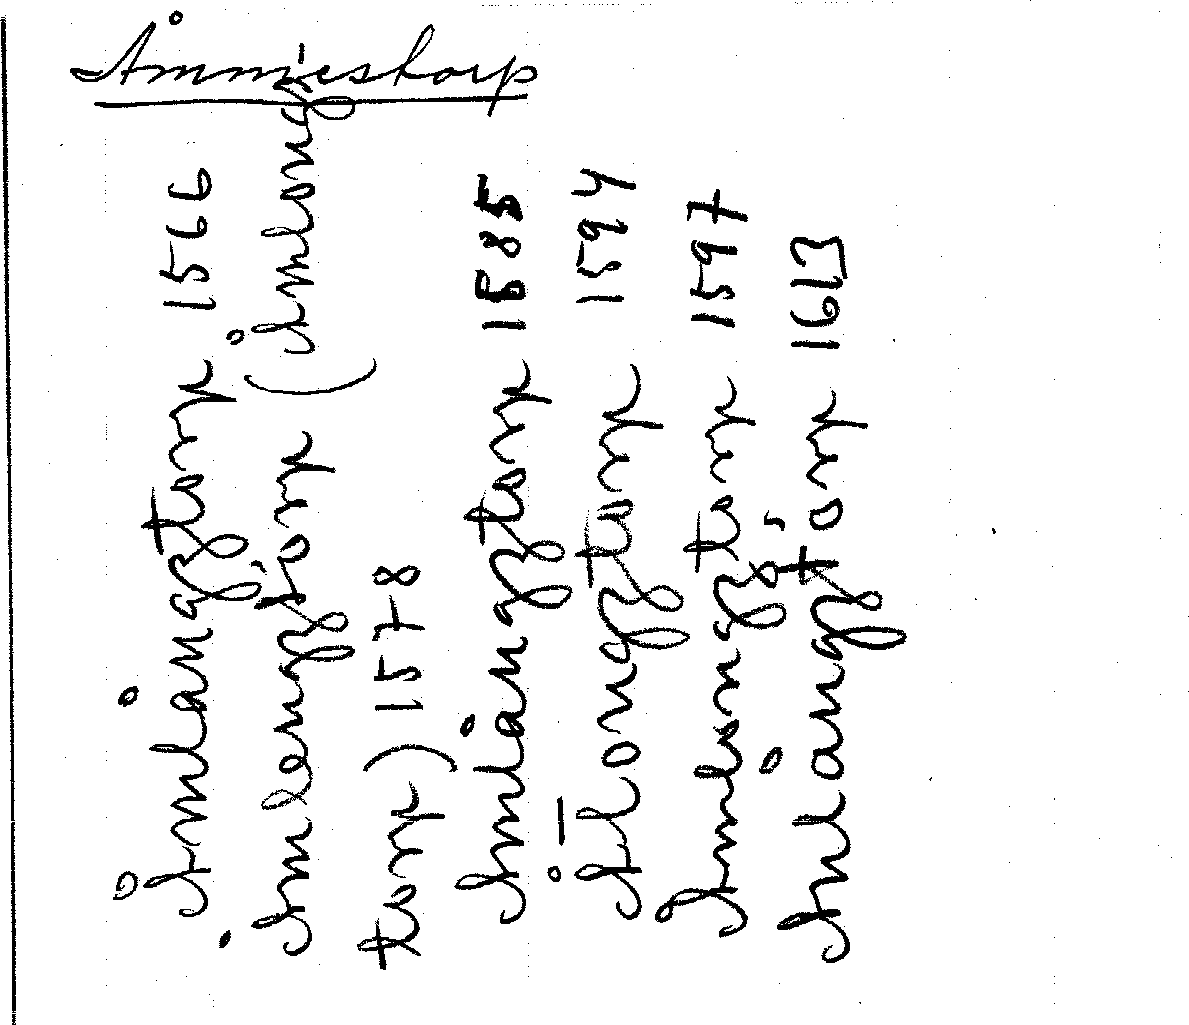 Åmmestorp
Åmlångztorp 1566
Åmlengztorp (Åmlongz
torp) 1578
Åmlångztorp 1585
Åhlongztorp 1594
Åmlungztorp 1597
Åmlångztorp 1613